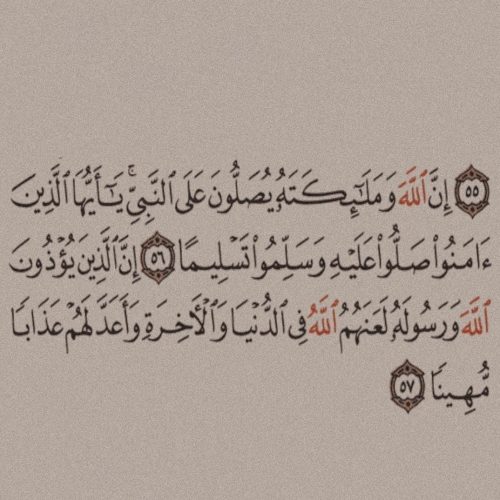 ٥٥ إِنَّ ٱللَّهَ وَمَلَٰٓئِكَتَهُۥ يُصَلُّونَ عَلَى ٱلنَّبِيِّۚ يَٰٓأَيُّهَا ٱلَّذِينَ
ءَامَنُوا۟ صَلُّوا۟ عَلَيْهِ وَسَلِّمُوا۟ تَسْلِيمًا ٥٦ إِنَّ ٱلَّذِينَ يُؤْذُونَ
ٱللَّهَ وَرَسُولَهُۥ لَعَنَهُمُ ٱللَّهُ فِى ٱلدُّنْيَا وَٱلْأَخِرَةِ وَأَعَدَّ لَهُمْ عَذَابًا
مُّهِينًا ٥٧